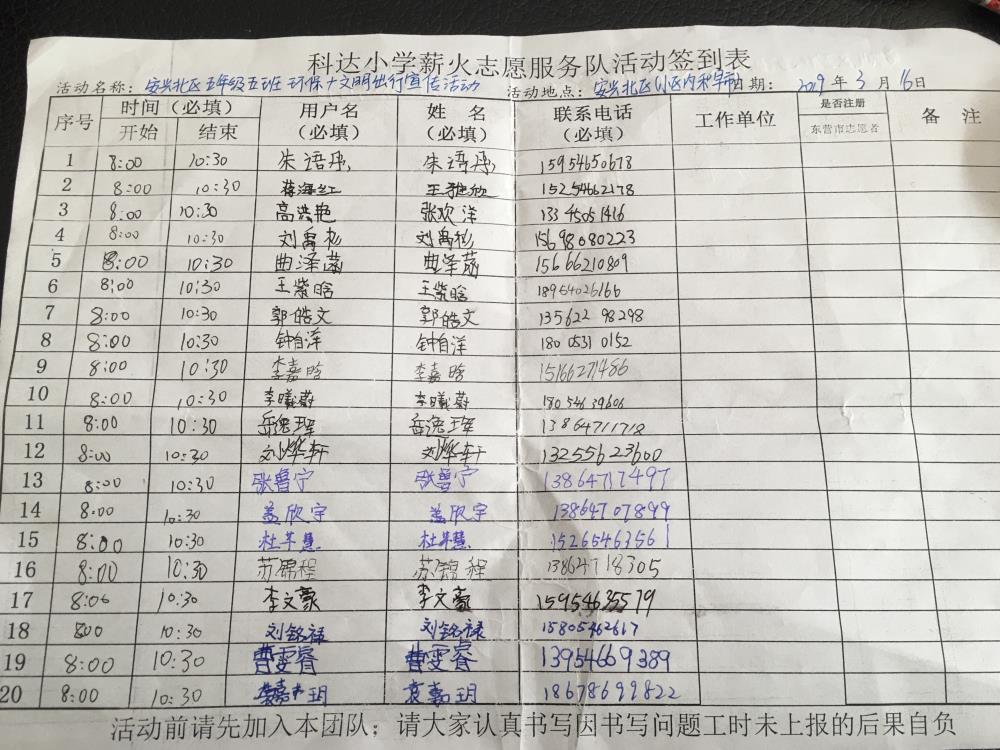 科达小学薪火志愿服务队活动签到表
活动名称：安兴北区五年级五班环保+文明出行宣传活动 活动地点：安兴北区(小区内和早市) 日期：2019年3月16日
序号 时间（必填） 用户名（必填） 姓名（必填） 联系电话（必填） 工作单位 是否注册东营市志愿者 备注
开始 结束
1 8:00 10:30 朱语彤 朱语彤 15954650678
2 8:00 10:30 蒋海红 王雅欣 15254662178
3 8:00 10:30 高洪艳 张欢洋 13345051416
4 8:00 10:30 刘禹彤 刘禹彤 15698080223
5 8:00 10:30 曲泽菡 曲泽菡 15666210809
6 8:00 10:30 王紫晗 王紫晗 18954026166
7 8:00 10:30 郭皓文 郭皓文 135622 98298
8 8:00 10:30 钟自洋 钟自洋 180 0531 0152
9 8:00 10:30 李嘉晗 李嘉晗 15166271486
10 8:00 10:30 李曦蔚 李曦蔚 18054639606
11 8:00 10:30 岳逸珲 岳逸珲 13864711712
12 8:00 10:30 刘烨轩 刘烨轩 13255623600
13 8:00 10:30 张鲁宁 张鲁宁 13864717497
14 8:00 10:30 盖欣宇 盖欣宇 13864707899
15 8:00 10:30 杜芊慧 杜芊慧 15265463561
16 8:00 10:30 苏锦程 苏锦程 13864718305
17 8:00 10:30 李文豪 李文豪 15954635579
18 8:00 10:30 刘铭禄 刘铭禄 15805462617
19 8:00 10:30 曹雯睿 曹雯睿 13954669389
20 8:00 10:30 嘉玥 袁嘉玥 18678699822
活动前请先加入本团队；请大家认真书写因书写问题工时未上报的后果自负